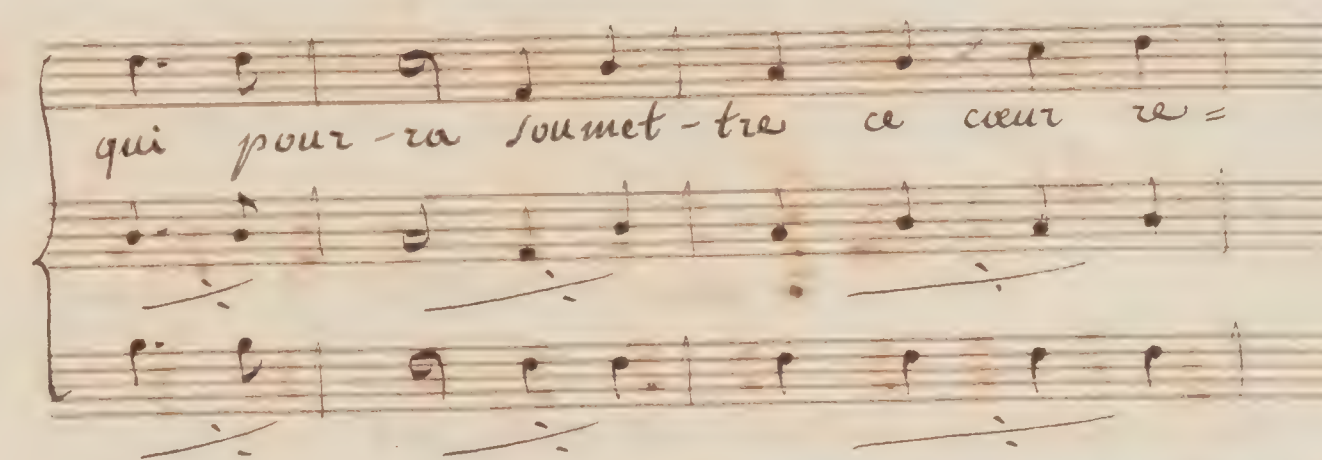 qui pour-ra soumet-tre ce cœur re=